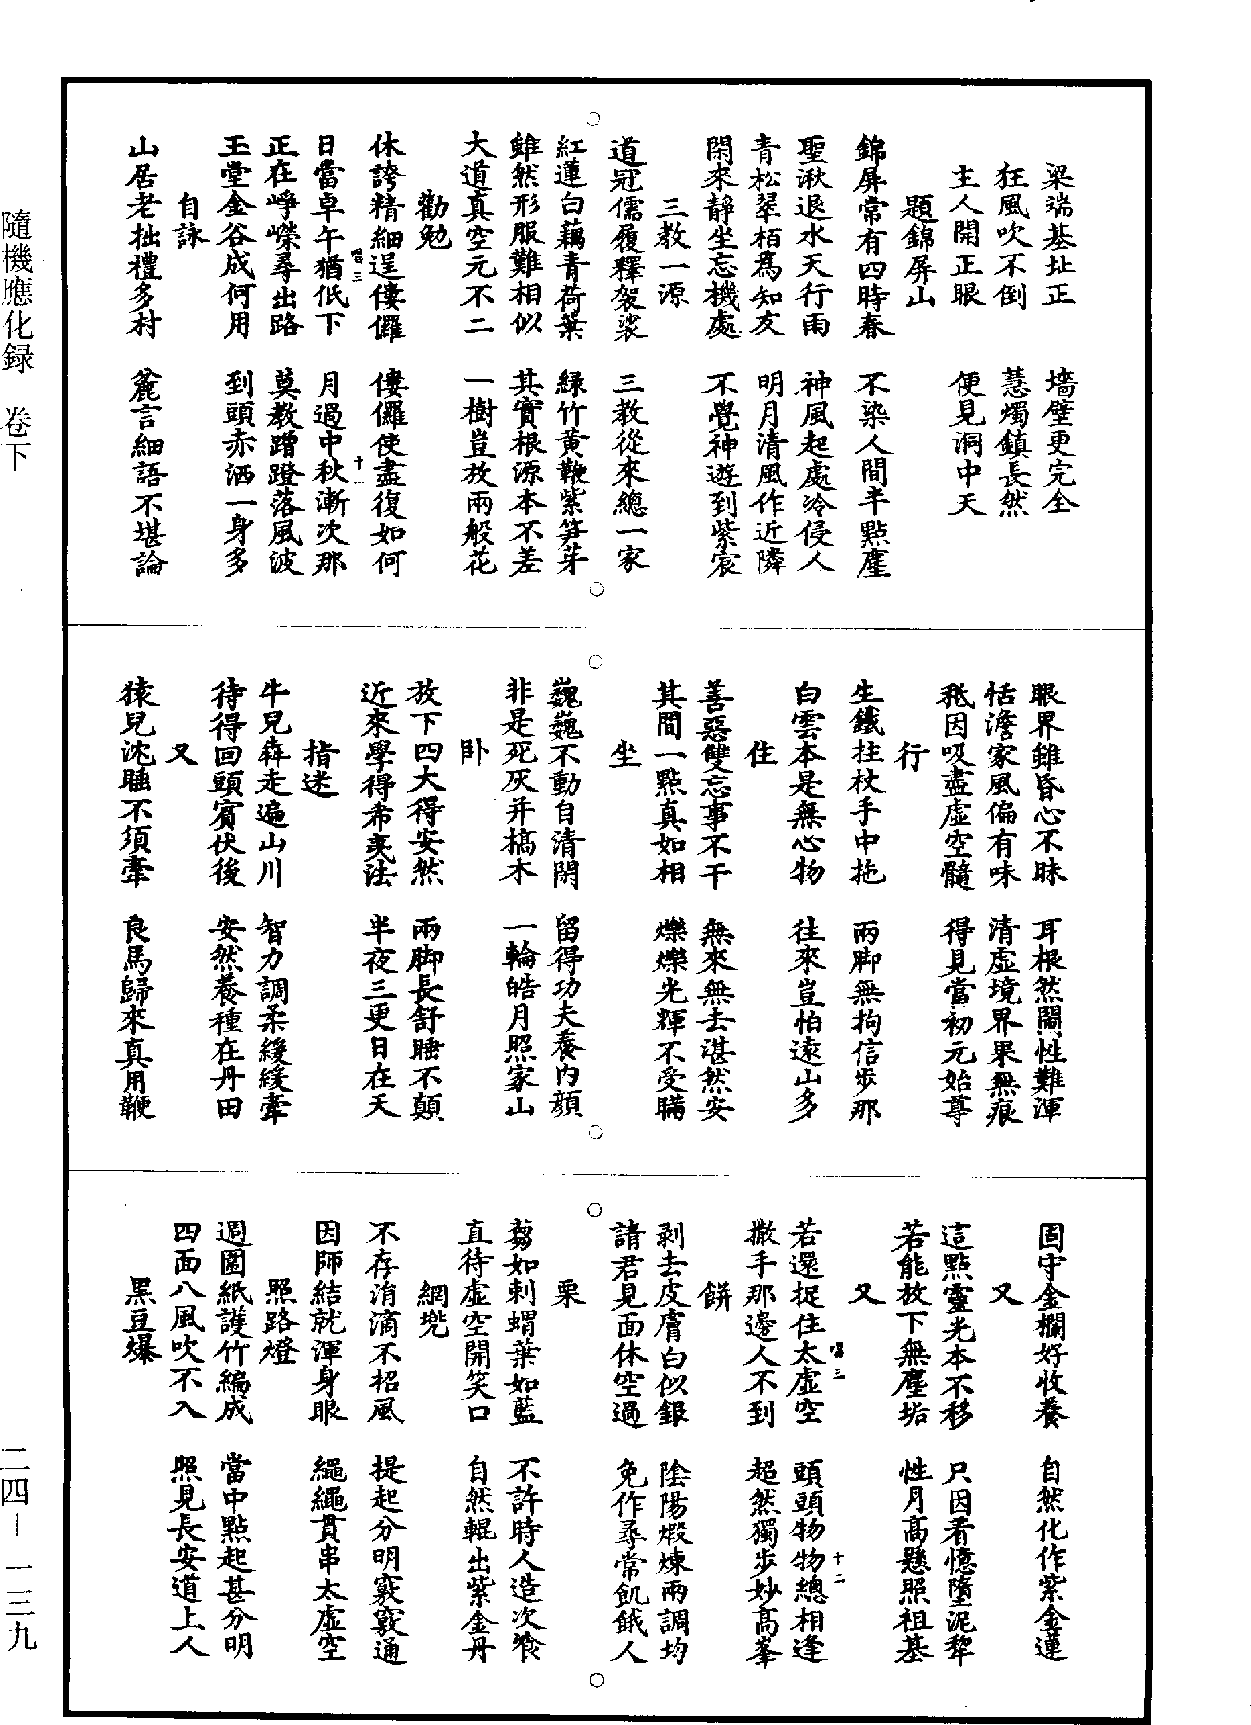 梁端基址正　墻壁更完全
狂風吹不倒　慧燭鎮長然
主人開正眼　便見洞中天
題錦屏山
錦屏常有四時春　不染人間半點塵
聖湫退水天行雨　神風起處冷侵人
青松翠栢爲知友　明月清風作近隣
閑來靜坐忘機處　不覺神遊到紫宸
三教一源
道冠儒履釋袈裟　三教從來總一家
紅蓮白藕青荷葉　綠竹黃鞭紫笋芽
雖然形服難相似　其實根源本不差
大道真空元不二　一樹豈放兩般花
勸勉
休誇精細逞僂儸　僂儸使盡復如何
日當卓午猶低下　月過中秋漸次那
唱三　十一
正在崢嶸尋出路　莫教蹭蹬落風波
玉堂金谷成何用　到頭赤洒一身多
自詠
山居老拙禮多村　麄言細語不堪論
眼界雖昏心不昧　耳根然閙性難渾
恬澹家風偏有味　清虛境界果無痕
秖因吸盡虛空髓　得見當初元始尊
行
生鐵拄杖手中拖　兩脚無拘信步那
白雲本是無心物　往來豈怕遠山多
住
善惡雙忘事不干　無來無去湛然安
其間一點真如相　爍爍光輝不受瞞
坐
巍巍不動自清閑　留得功夫養內顏
非是死灰并槁木　一輪皓月照家山
卧
放下四大得安然　兩脚長舒睡不顛
近來學得希夷法　半夜三更日在天
指迷
牛兒犇走遍山川　智力調柔緩緩牽
待得回頭賓伏後　安然養種在丹田
又
猿兒沈睡不須牽　良馬歸來真用鞭
固守金欄好收養　自然化作紫金蓮
又
這點靈光本不移　只因看憶墮泥犂
若能放下無塵垢　性月高懸照祖基
又
若還捉住太虛空　頭頭物物總相逢
唱三　十二
撒手那邊人不到　超然獨步妙高峯
餅
剥去皮膚白似銀　陰陽煅煉兩調均
請君見面休空過　免作尋常飢餓人
栗
芻如刺蝟葉如藍　不許時人造次飡
直待虛空開笑口　自然輥出紫金丹
網兠
不存涓滴不招風　提起分明竅竅通
因師結就渾身眼　繩繩貫串太虛空
照路燈
週圓紙護竹編成　當中點起甚分明
四面八風吹不入　照見長安道上人
黑豆爆
隨機應化録　卷下
二四－一三九